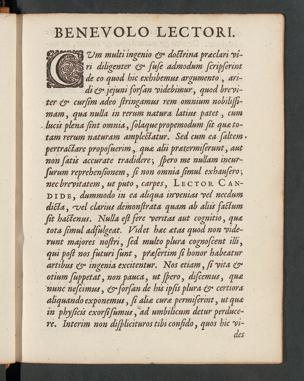 BENEVOLO LECTORI.
CUm multi ingenio & doctrina præclari vi-
ri diligenter & fuse admodum scripserint
de eo quod hic exhibemus argumento, ari-
di & jejuni forsan videbimur, quod brevi-
ter & cursim adeo stringamus rem omnium nobilissi-
mam, qua nulla in rerum natura latius patet, cum
lucis plena sint omnia, solaque propemodum sit quæ to-
tam rerum naturam amplectatur. Sed cum ea saltem
pertractare proposuerim, quæ alii prætermiserunt, aut
non satis accurate tradidere; spero me nullam incur-
surum reprehensionem, si non omnia simul exhausero;
nec brevitatem, ut puto, carpes, LECTOR CAN-
DIDE, dummodo in ea aliqua invenias vel nondum
dicta, vel clarius demonstrata quam ab aliis factum
sit hactenus. Nulla est fere veritas aut cognitio, quæ
tota simul adfulgeat. Videt hæc ætas quod non vide-
runt majores nostri, sed multo plura cognoscent illi,
qui post nos futuri sunt, præsertim si honor habeatur
artibus & ingenia excitentur. Nos etiam, si vita &
otium suppetat, non pauca, ut spero, discemus, quæ
nunc nescimus, & forsan de his ipsis plura & certiora
aliquando exponemus, si aliæ curæ permiserint, ut quæ
in physicis exorsi sumus, ad umbilicum detur perduce-
re. Interim non displicituros tibi confido, quos hic vi-
des